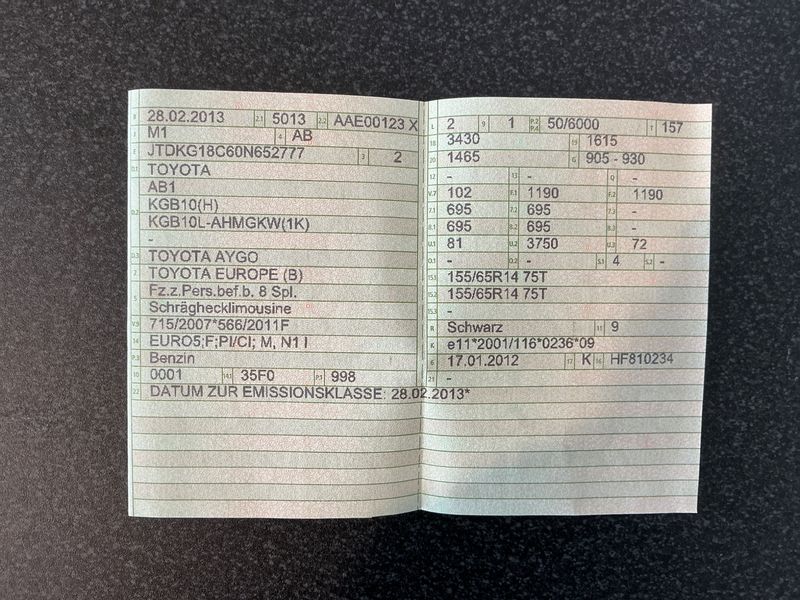 B 28.02.2013 2.1 5013 2.2 AAE00123 X
J M1 4 AB
E JTDKG18C60N652777 3 2
D.1 TOYOTA
AB1
D.2 KGB10(H)
KGB10L-AHMGKW(1K)
-
D.3 TOYOTA AYGO
2 TOYOTA EUROPE (B)
5 Fz.z.Pers.bef.b. 8 Spl.
Schräghecklimousine
V.9 715/2007*566/2011F
14 EURO5;F;PI/CI; M, N1 I
P.3 Benzin
10 0001 14.1 35F0 P.1 998
22 DATUM ZUR EMISSIONSKLASSE: 28.02.2013*
L 2 9 1 P.2 P.4 50/6000 T 157
18 3430 19 1615
20 1465 G 905 - 930
12 - 13 - Q -
V.7 102 F.1 1190 F.2 1190
7.1 695 7.2 695 7.3 -
8.1 695 8.2 695 8.3 -
U.1 81 U.2 3750 U.3 72
O.1 - O.2 - S.1 4 S.2 -
15.1 155/65R14 75T
15.2 155/65R14 75T
15.3 -
R Schwarz 11 9
K e11*2001/116*0236*09
6 17.01.2012 17 K 16 HF810234
21 -